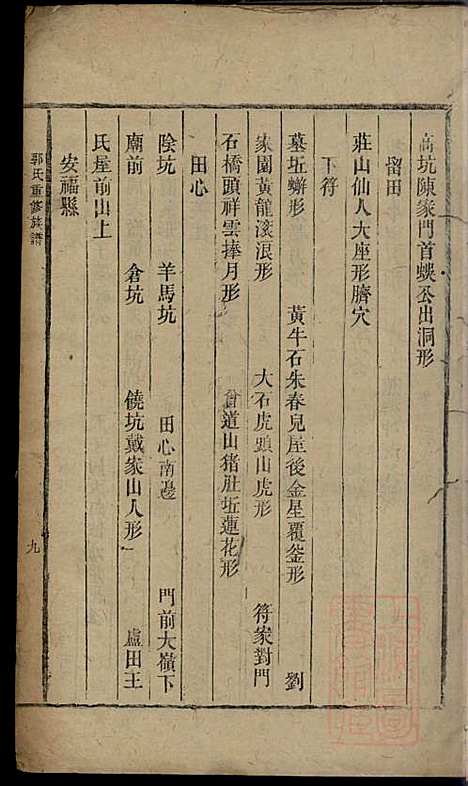 高坑陳家門首蜈蚣出洞形
留田
莊山仙人大座形臍穴
下符
墓坵蠏形　黃牛石朱春兒屋後金星覆釜形　劉
家園黃龍滚浪形　大石虎頭山虎形　符家對門
石橋頭祥雲捧月形　道山猪肚坵蓮花形
田心
陰坑　羊馬坑　田心南邊　門前大嶺下
廟前　倉坑　僥坑戴家山人形　盧田王
氏屋前山上
安福縣
郭氏重修族譜
九